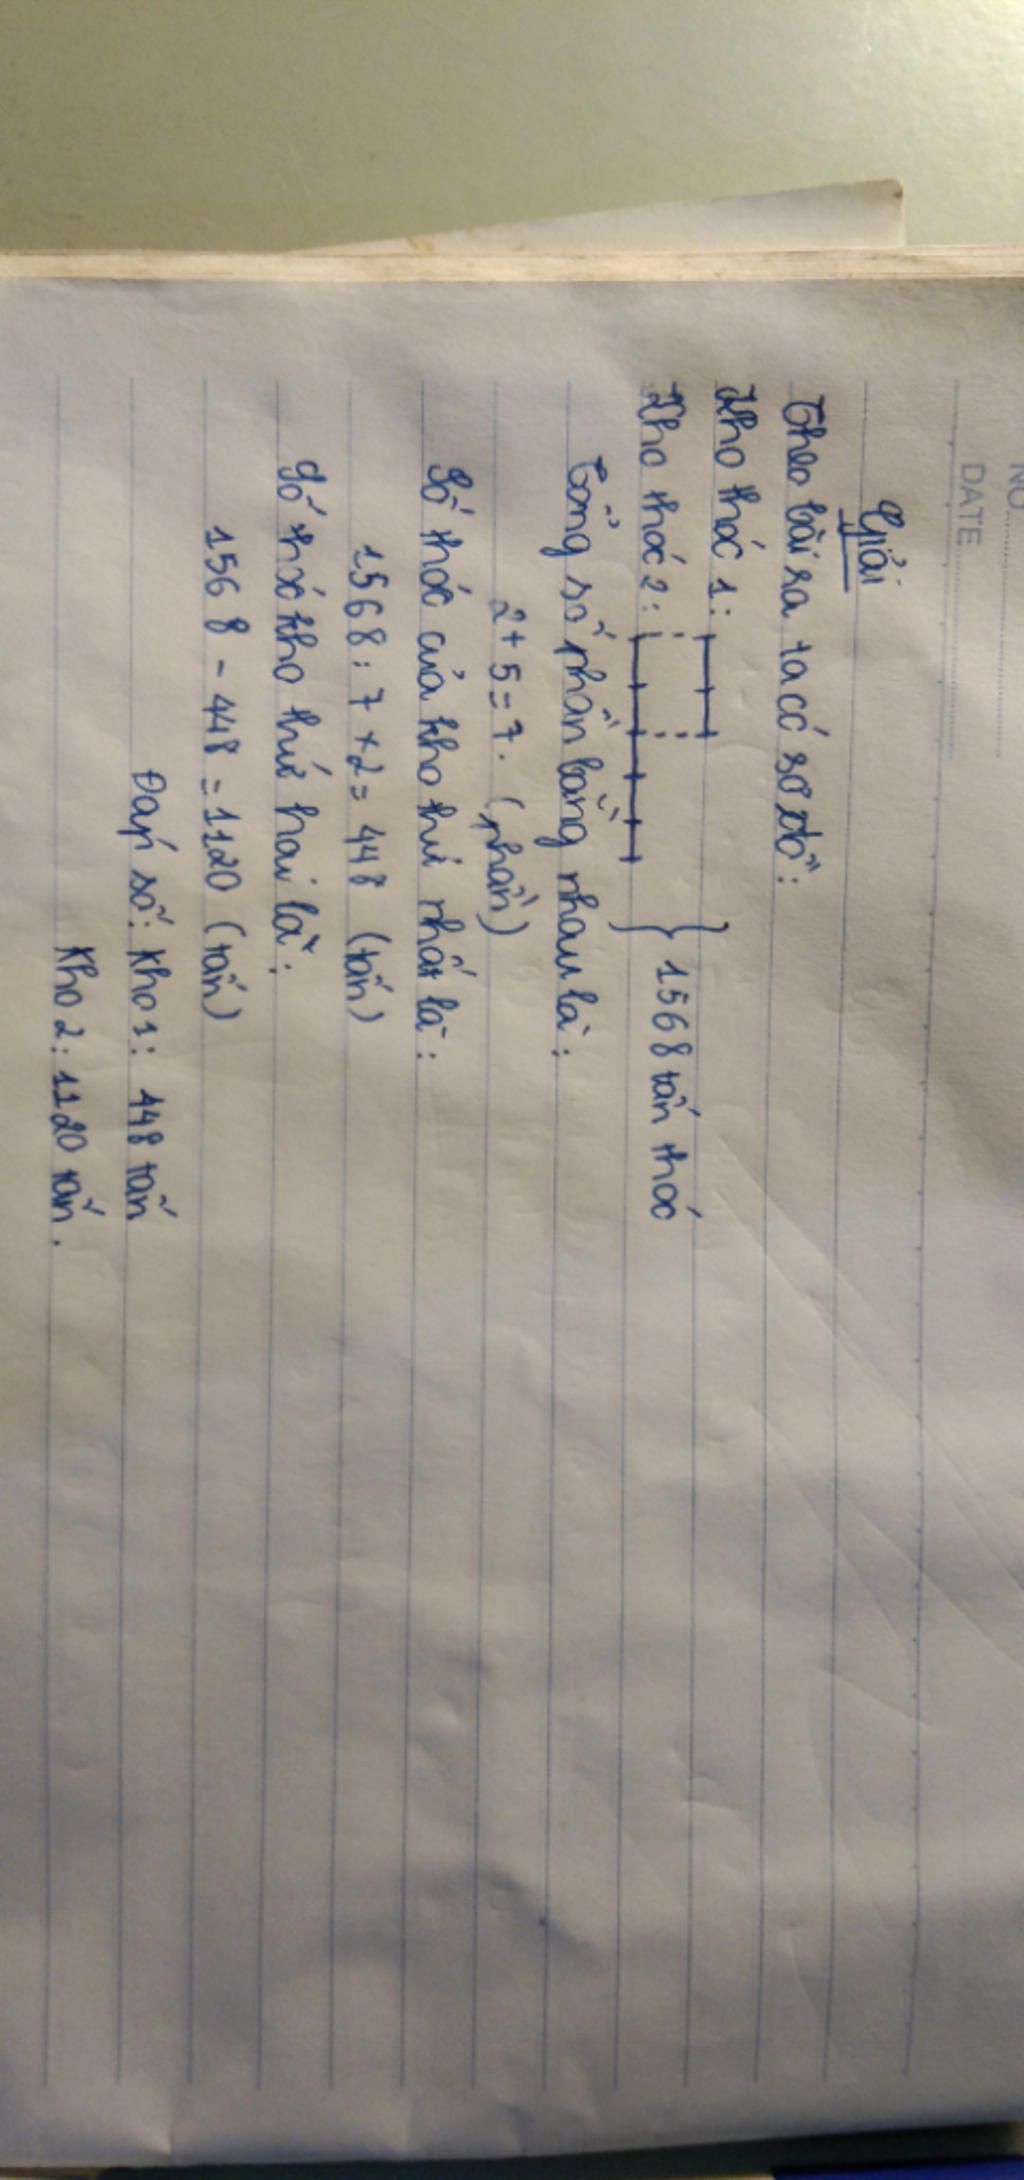 NO
DATE
Giải
Theo bài ra ta có sơ đồ:
Kho thóc 1:
Kho thóc 2:
1568 tấn thóc
Tổng số phần bằng nhau là:
2 + 5 = 7. (phần)
Số thóc của kho thứ nhất là:
1568 : 7 × 2 = 448 (tấn)
Số thóc kho thứ hai là:
1568 - 448 = 1120 (tấn)
Đáp số: Kho 1: 448 tấn
Kho 2: 1120 tấn.